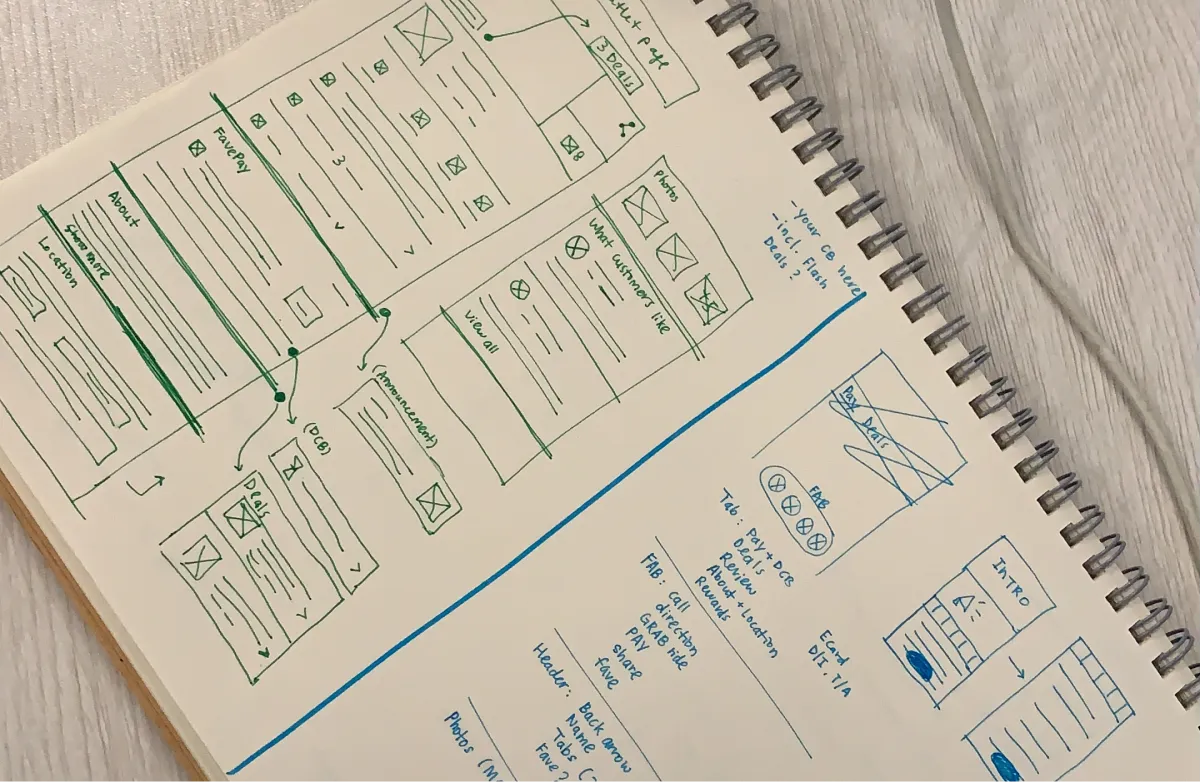 utlet page
3 Deals
8
3
FavePay
About
Show more
Location
Photos
What customers like
View all
(Announcement)
(DCB)
Deals
- your CB here
- incl Flash
Deals ?
Pay Deals
FAB
Tab: Pay + DCB
Deals
Review
About + Location
Rewards
FAB: call
direction
GRAB ride
PAY
share
Fave
Header: Back arrow
Name
Tabs (
Fave?
Photos (M
Ecard
D/I, T/A
INTRO